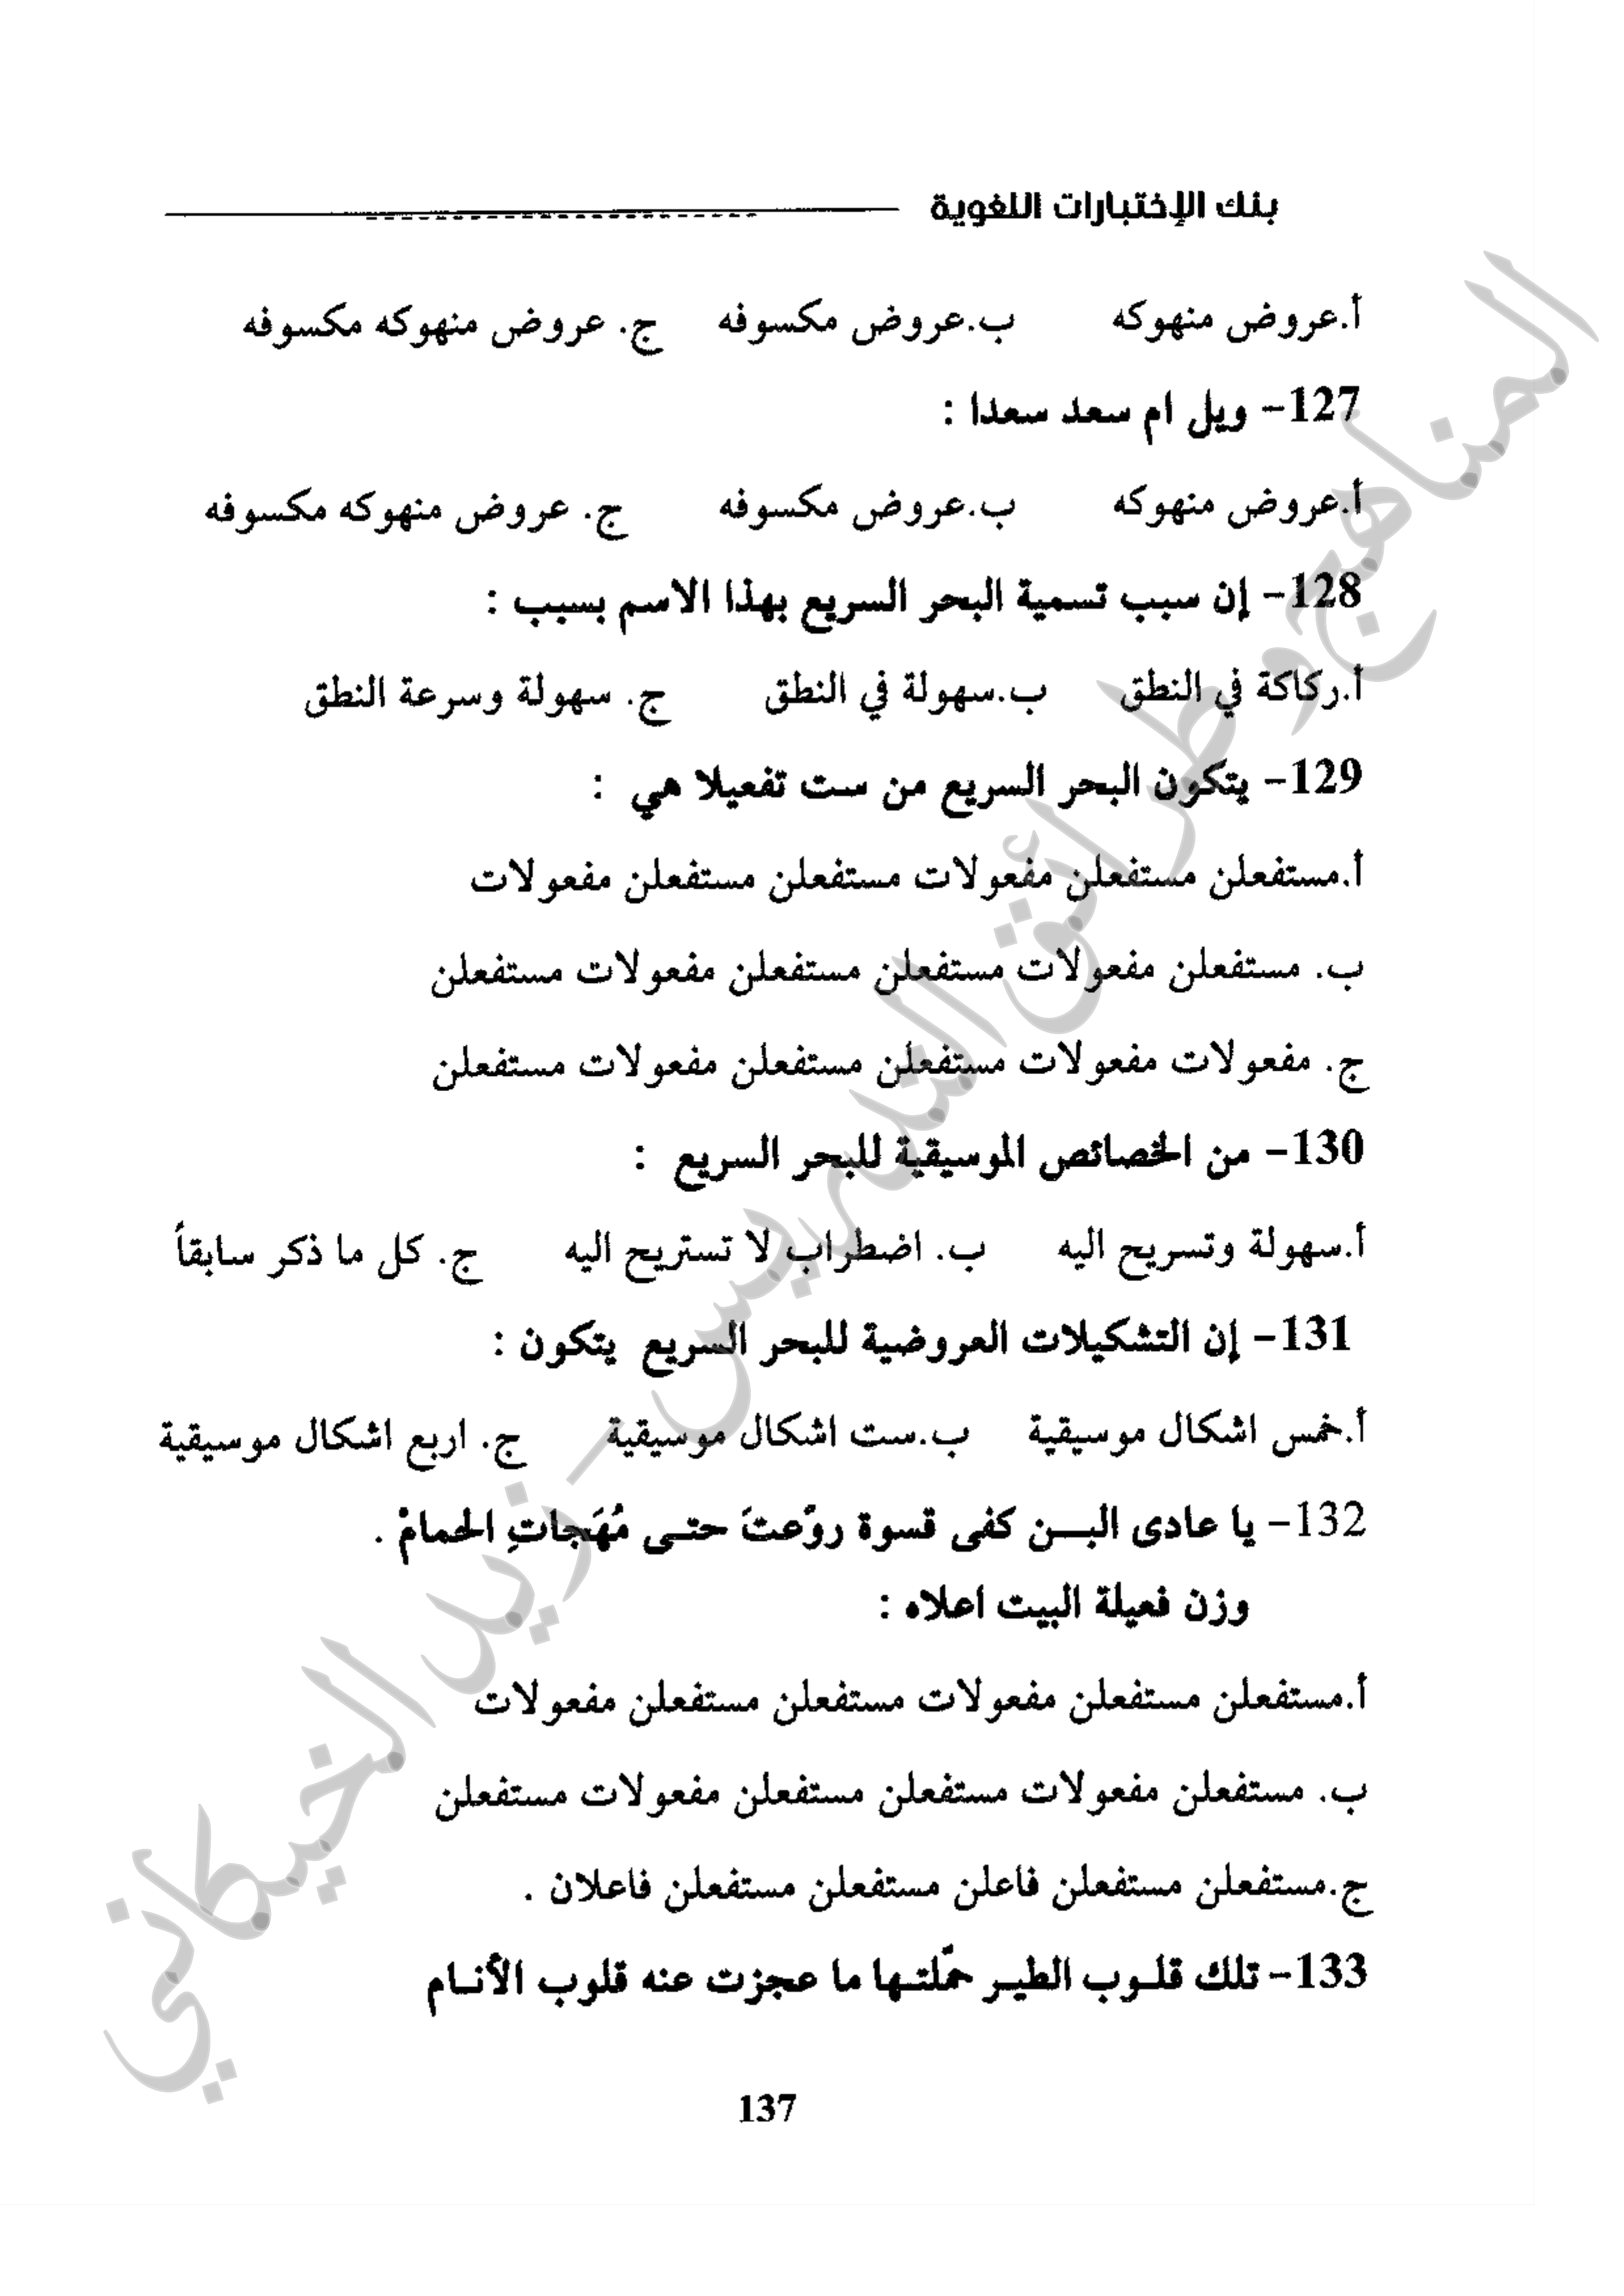 بنك الإختبارات اللغوية
أ.عروض منهوكه ب.عروض مكسوفه ج. عروض منهوكه مكسوفه
127- ويل ام سعد سعدا :
أ.عروض منهوكه ب.عروض مكسوفه ج. عروض منهوكه مكسوفه
128- إن سبب تسمية البحر السريع بهذا الاسم بسبب :
أ.ركاكة في النطق ب.سهولة في النطق ج. سهولة وسرعة النطق
129- يتكون البحر السريع من ست تفعيلا هي :
أ.مستفعلن مستفعلن مفعولات مستفعلن مستفعلن مفعولات
ب. مستفعلن مفعولات مستفعلن مستفعلن مفعولات مستفعلن
ج. مفعولات مفعولات مستفعلن مستفعلن مفعولات مستفعلن
130- من الخصائص الموسيقية للبحر السريع :
أ.سهولة وتسريح اليه ب. اضطراب لا تستريح اليه ج. كل ما ذكر سابقاً
131- إن التشكيلات العروضية للبحر السريع يتكون :
أ.خمس اشكال موسيقية ب.ست اشكال موسيقية ج. اربع اشكال موسيقية
132- يا عادى البـــن كفى قسوة روّعتَ حتـى مُهَجاتِ الحمامْ .
وزن فعيلة البيت اعلاه :
أ.مستفعلن مستفعلن مفعولات مستفعلن مستفعلن مفعولات
ب. مستفعلن مفعولات مستفعلن مستفعلن مفعولات مستفعلن
ج.مستفعلن مستفعلن فاعلن مستفعلن مستفعلن فاعلان .
133- تلك قلـوب الطيـر حمّلتـها ما عجزت عنه قلوب الأنـام
137
المناهج وطرائق التدريس - زيد الخيكاني